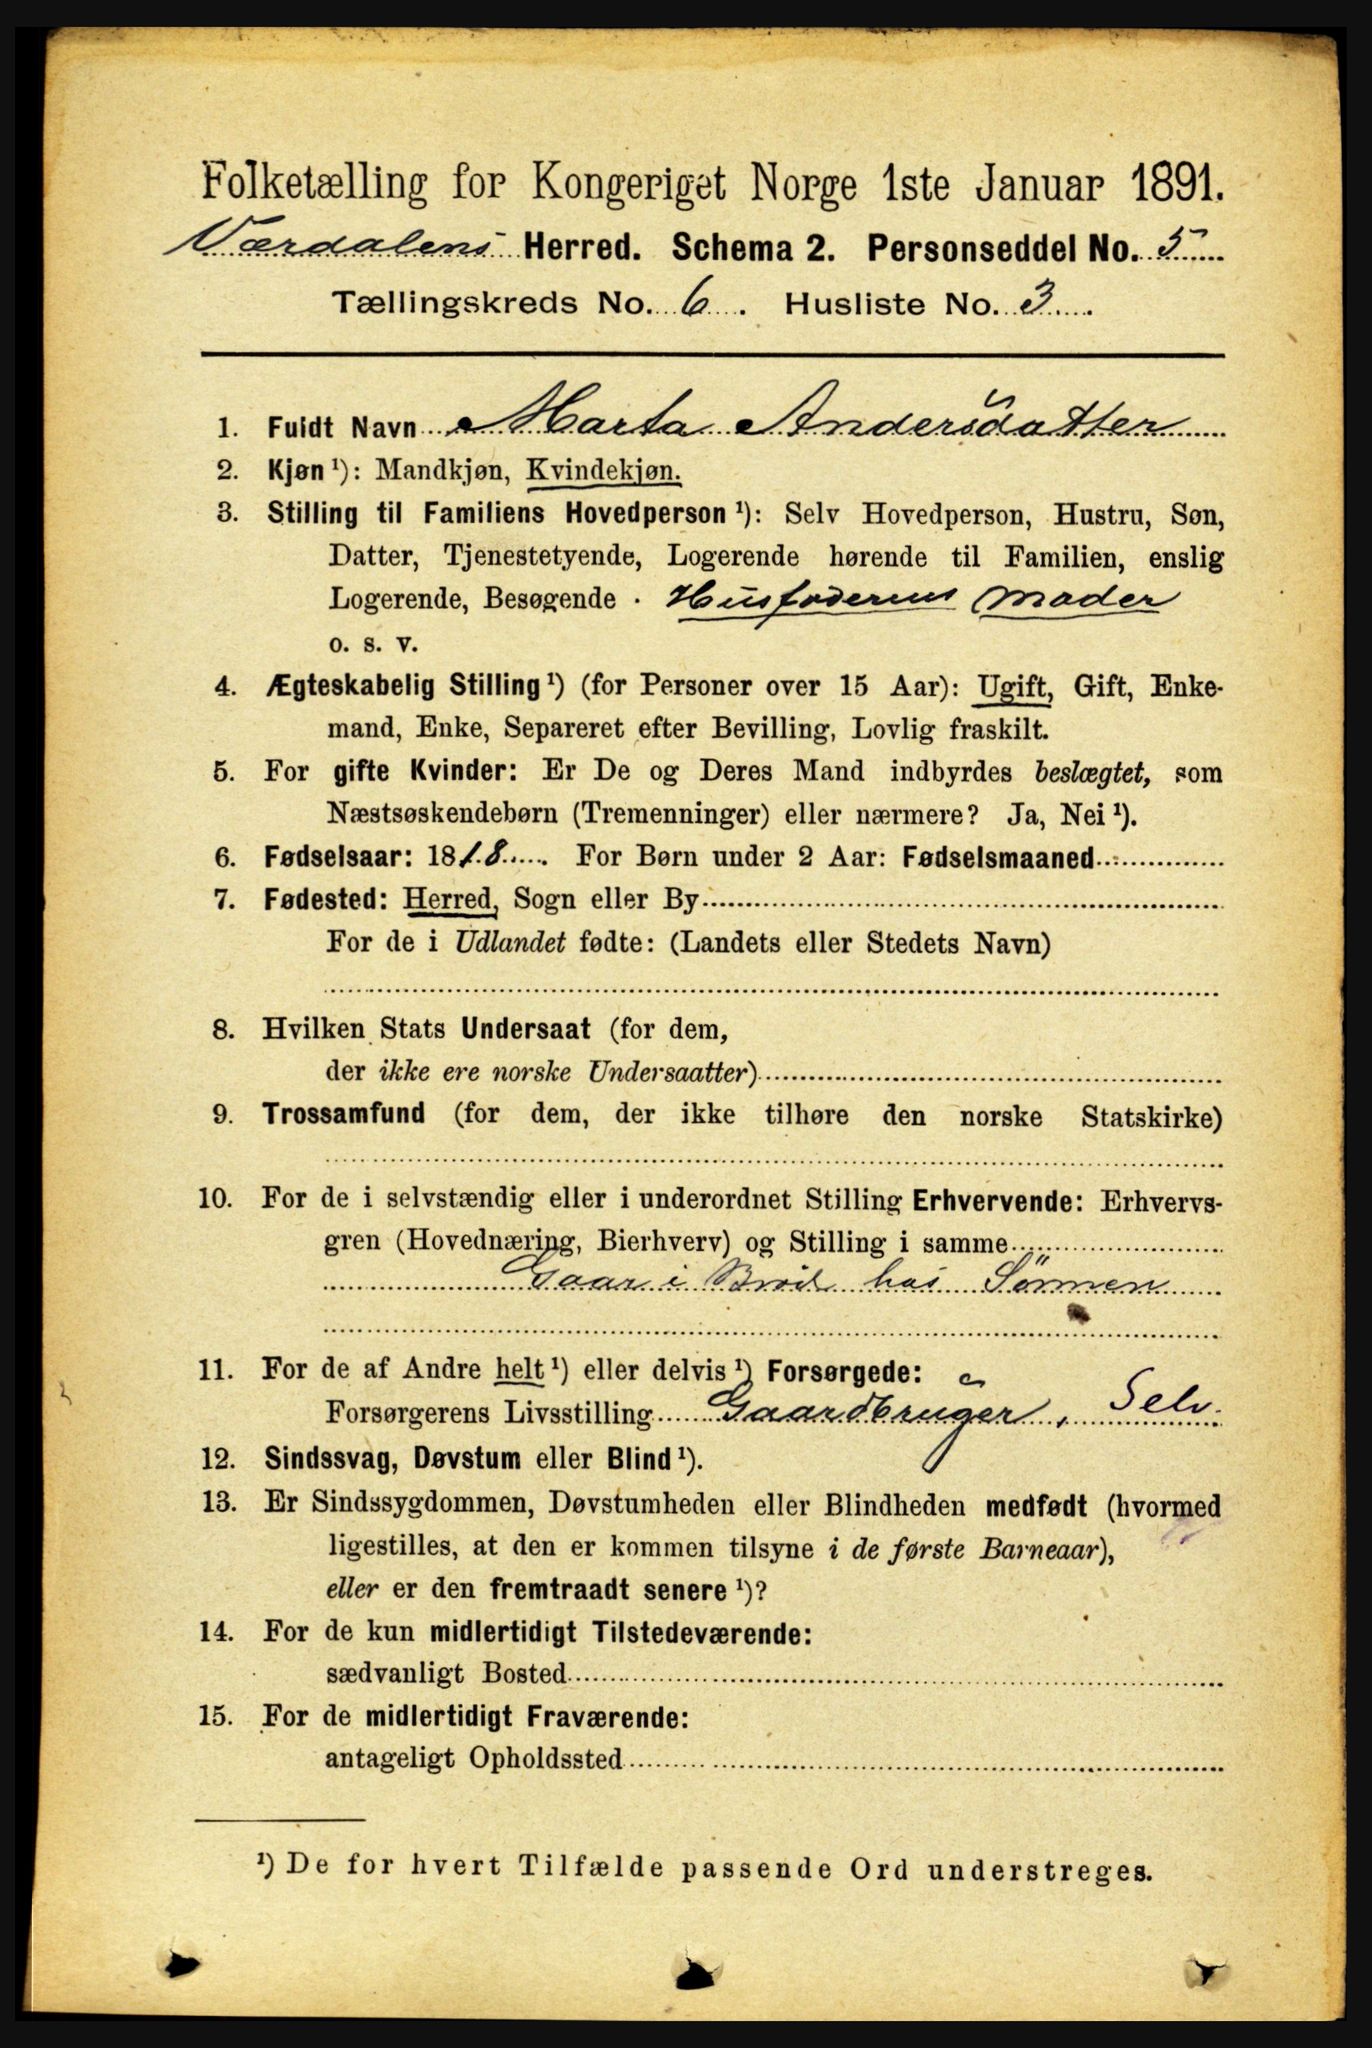 Folketælling for Kongeriget Norge 1ste Januar 1891.
Værdalens Herred. Schema 2. Personseddel No. 5
Tællingskreds No. 6. Husliste No. 3.
1. Fuldt Navn Marta Andersdatter
2. Kjøn ¹): Mandkjøn, Kvindekjøn.
3. Stilling til Familiens Hovedperson ¹): Selv Hovedperson, Hustru, Søn,
Datter, Tjenestetyende, Logerende hørende til Familien, enslig
Logerende, Besøgende · Husfaderens Moder
o. s. v.
4. Ægteskabelig Stilling ¹) (for Personer over 15 Aar): Ugift, Gift, Enke-
mand, Enke, Separeret efter Bevilling, Lovlig fraskilt.
5. For gifte Kvinder: Er De og Deres Mand indbyrdes beslægtet, som
Næstsøskendebørn (Tremenninger) eller nærmere? Ja, Nei ¹).
6. Fødselsaar: 1818. For Børn under 2 Aar: Fødselsmaaned
7. Fødested: Herred, Sogn eller By
For de i Udlandet fødte: (Landets eller Stedets Navn)
8. Hvilken Stats Undersaat (for dem,
der ikke ere norske Undersaatter)
9. Trossamfund (for dem, der ikke tilhøre den norske Statskirke)
10. For de i selvstændig eller i underordnet Stilling Erhvervende: Erhvervs-
gren (Hovednæring, Bierhverv) og Stilling i samme
Gaar i Brød hos Sønnen
11. For de af Andre helt ¹) eller delvis ¹) Forsørgede:
Forsørgerens Livsstilling Gaardbruger, Selv.
12. Sindssvag, Døvstum eller Blind ¹).
13. Er Sindssygdommen, Døvstumheden eller Blindheden medfødt (hvormed
ligestilles, at den er kommen tilsyne i de første Barneaar),
eller er den fremtraadt senere ¹)?
14. For de kun midlertidigt Tilstedeværende:
sædvanligt Bosted
15. For de midlertidigt Fraværende:
antageligt Opholdssted
¹) De for hvert Tilfælde passende Ord understreges.